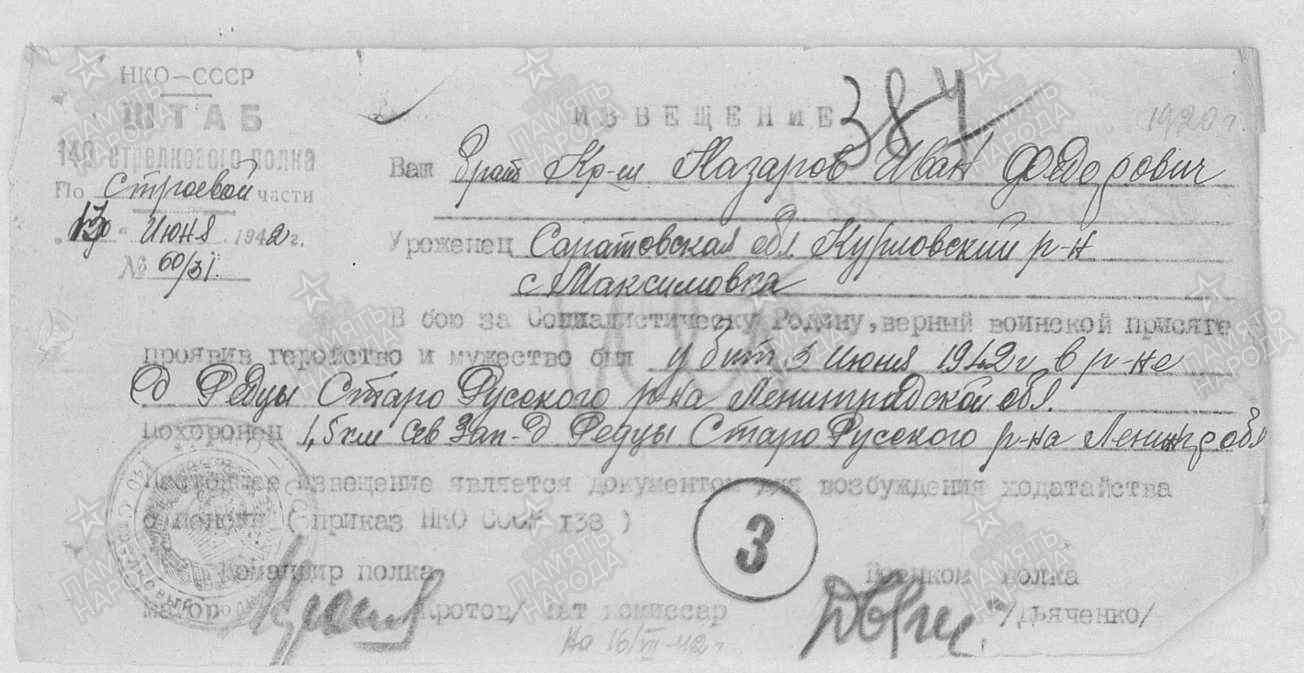 НКО-СССР
ШТАБ
140 стрелкового полка
По строевой части
"13" июня 1942г.
№ 60/31.
384
1920г.
ИЗВЕЩЕНИЕ
Ваш брат Кр-ц Назаров Иван Федорович
Уроженец Саратовская обл. Курловский р-н
с Максимовка
В бою за Социалистическу Родину, верный воинской присяге
проявив геройство и мужество был убит 3 июня 1942г в р-не
д Редцы Старо Русского р-на Ленинградской обл.
Похоронен 1,5км Сев Зап. д Редцы Старо Русского р-на Ленингр обл
Настоящее извещение является документом для возбуждения ходатайства
о пенсии ( приказ НКО СССР 138 )
3
Командир полка Военком полка
майор /Кротов/ бат комиссар /Дьяченко/
16/VII-42г
ПАМЯТЬ НАРОДА